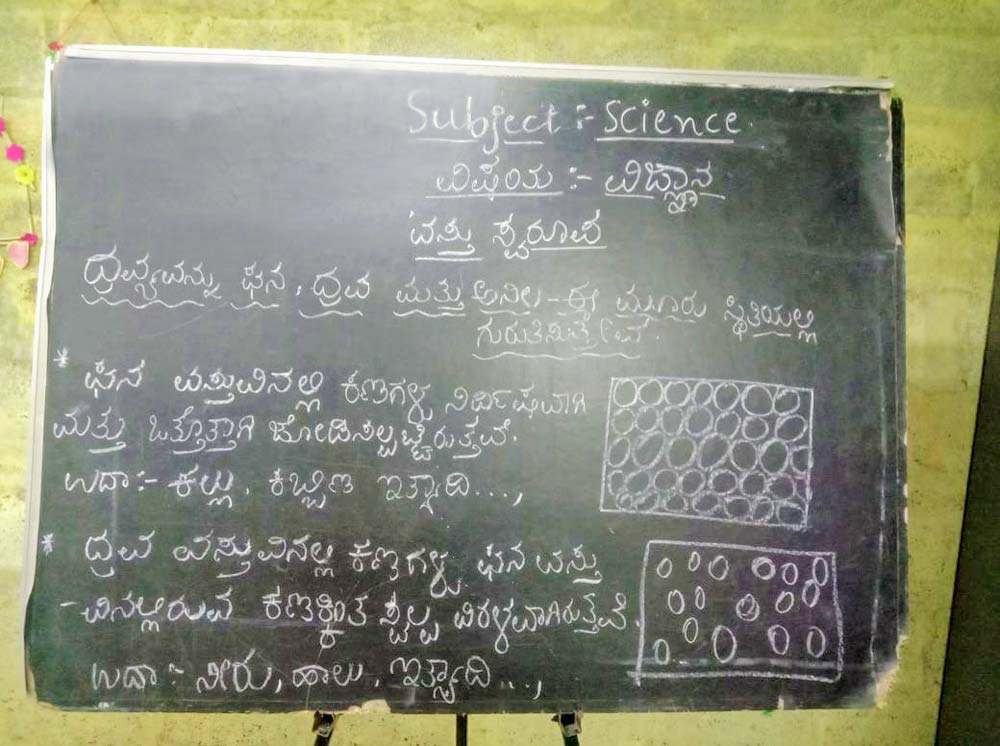 Subject :- Science.
ವಿಷಯ :- ವಿಜ್ಞಾನ
ವಸ್ತು ಸ್ವರೂಪ
ದ್ರವ್ಯವನ್ನು ಘನ, ದ್ರವ ಮತ್ತು ಅನಿಲ-ಈ ಮೂರು ಸ್ಥಿತಿಯಲ್ಲಿ
ಗುರುತಿಸುತ್ತೇವೆ.
* ಘನ ವಸ್ತುವಿನಲ್ಲಿ ಕಣಗಳು ನಿರ್ದಿಷವಾಗಿ
ಮತ್ತು ಒತ್ತೊತ್ತಾಗಿ ಜೋಡಿಸಲ್ಪಟ್ಟಿರುತ್ತವೆ.
ಉದಾ :- ಕಲ್ಲು, ಕಬ್ಬಿಣ ಇತ್ಯಾದಿ...,
* ದ್ರವ ವಸ್ತುವಿನಲ್ಲಿ ಕಣಗಳು ಘನ ವಸ್ತು
- ವಿನಲ್ಲಿರುವ ಕಣಕ್ಕಿಂತ ಸ್ವಲ್ಪ ವಿರಳವಾಗಿರುತ್ತವೆ.
ಉದಾ :- ನೀರು, ಹಾಲು, ಇತ್ಯಾದಿ...,